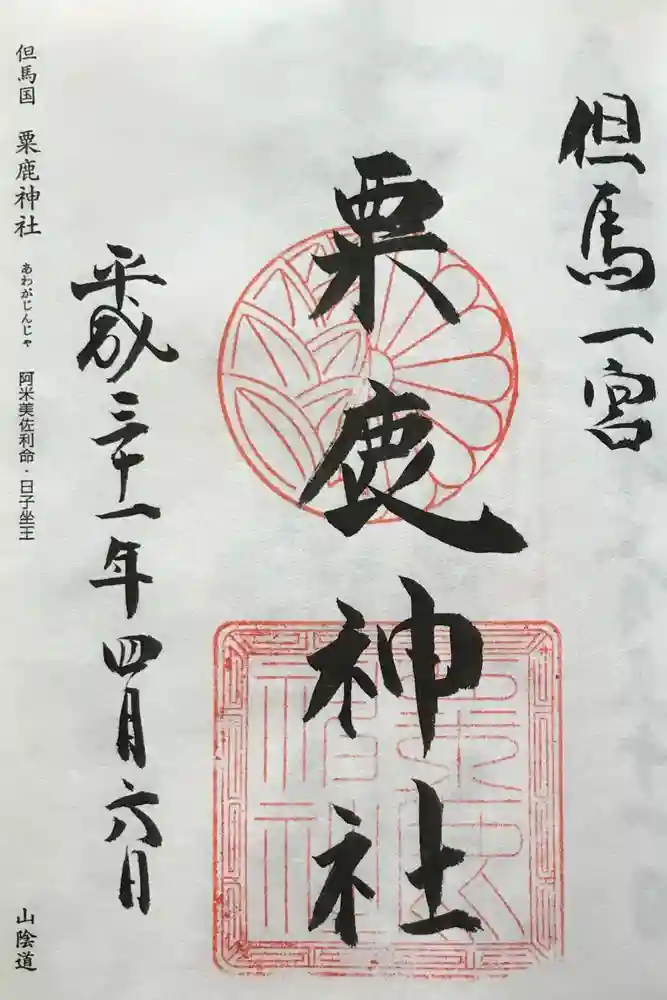 但馬一宮
粟鹿神社
平成三十一年四月六日
但馬国 粟鹿神社 あわがじんじゃ 阿米美佐利命・日子坐王
山陰道